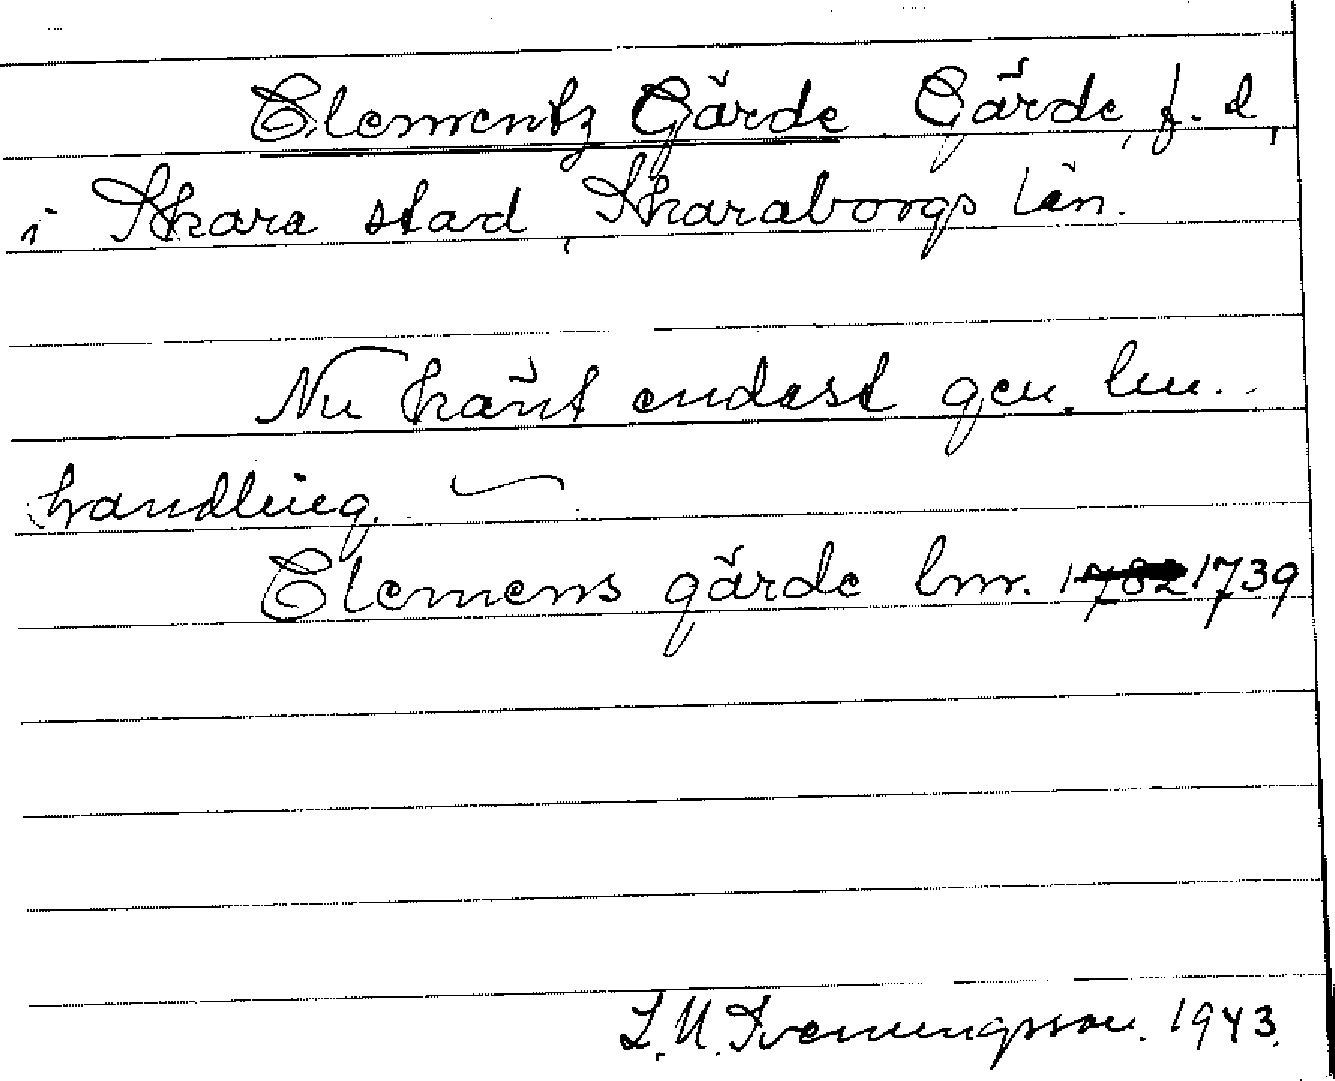 Clementz Gärde Gärde, f. d,
i Skara stad, Skaraborgs län.
Nu känt endast gen. lm.
handling.
Clemens gärde lmr. 1782 1739
S. Svenningsson. 1943.